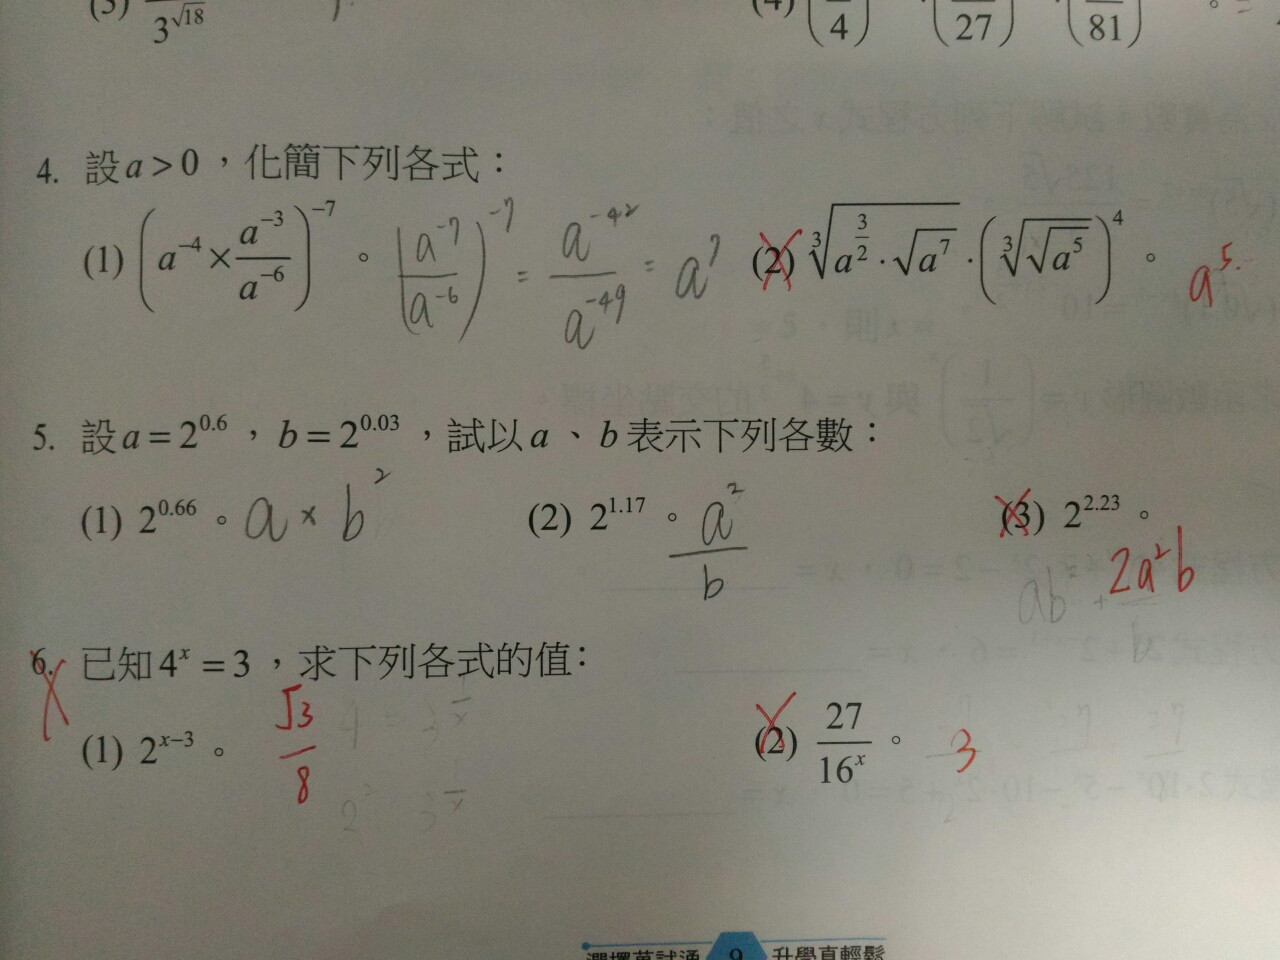 3^√18
(4) (/4) · (/27) · (/81) 。=
4. 設 a > 0 ，化簡下列各式：
(1) (a^-4 × a^-3/a^-6)^-7 。 (a^-7/a^-6)^-7 = a^-42/a^-49 = a^7
(2) ∛(a^(3/2) · √a^7) · (∛√a^5)^4 。 a^5.
5. 設 a = 2^0.6 ， b = 2^0.03 ，試以 a 、 b 表示下列各數：
(1) 2^0.66 。 a × b^2 (2) 2^1.17 。 a^2/b (3) 2^2.23 。 2a^2b
6. 已知 4^x = 3 ，求下列各式的值：
(1) 2^(x-3) 。 √3/8 (2) 27/16^x 。 3
9 升學真輕鬆